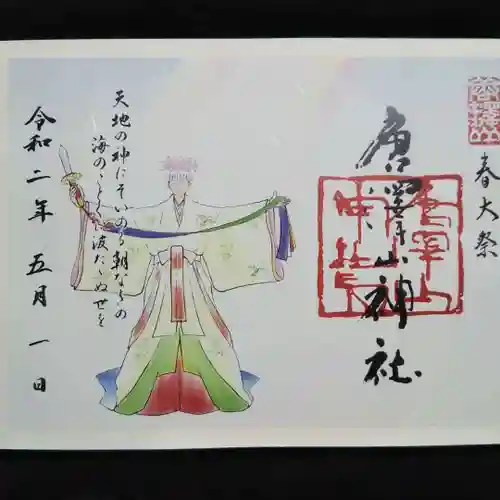 春大祭
唐澤山神社
天地の神にぞいのる朝なぎの
海のごとくに波たゝぬ世を
令和二年五月一日